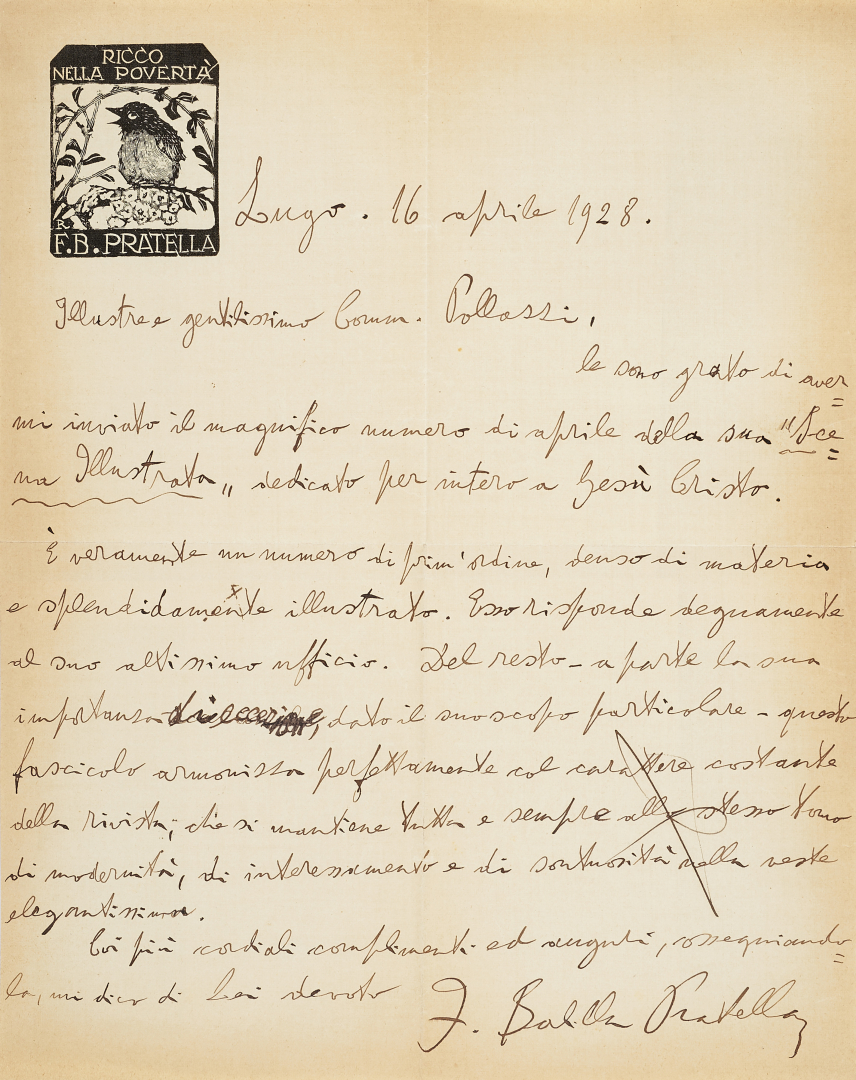 RICCO
NELLA POVERTÀ
R
F.B. PRATELLA
Lugo . 16 aprile 1928 .
Illustre e gentilissimo Comm. Pollazzi,
le sono grato di aver=
mi inviato il magnifico numero di aprile della sua "Sce=
na Illustrata" dedicato per intero a Gesù Cristo.
È veramente un numero di prim'ordine, denso di materia
e splendidamente illustrato. Esso risponde degnamente
al suo altissimo ufficio. Del resto - a parte la sua
importanza di eccezione, dato il suo scopo particolare - questo
fascicolo armonizza perfettamente col carattere costante
della rivista, che si mantiene tutta e sempre allo stesso tono
di modernità, di interessamento e di sontuosità nella veste
elegantissima.
Coi più cordiali complimenti ed auguri, ossequiando=
la, mi dico di Lei devoto
F. Balilla Pratella